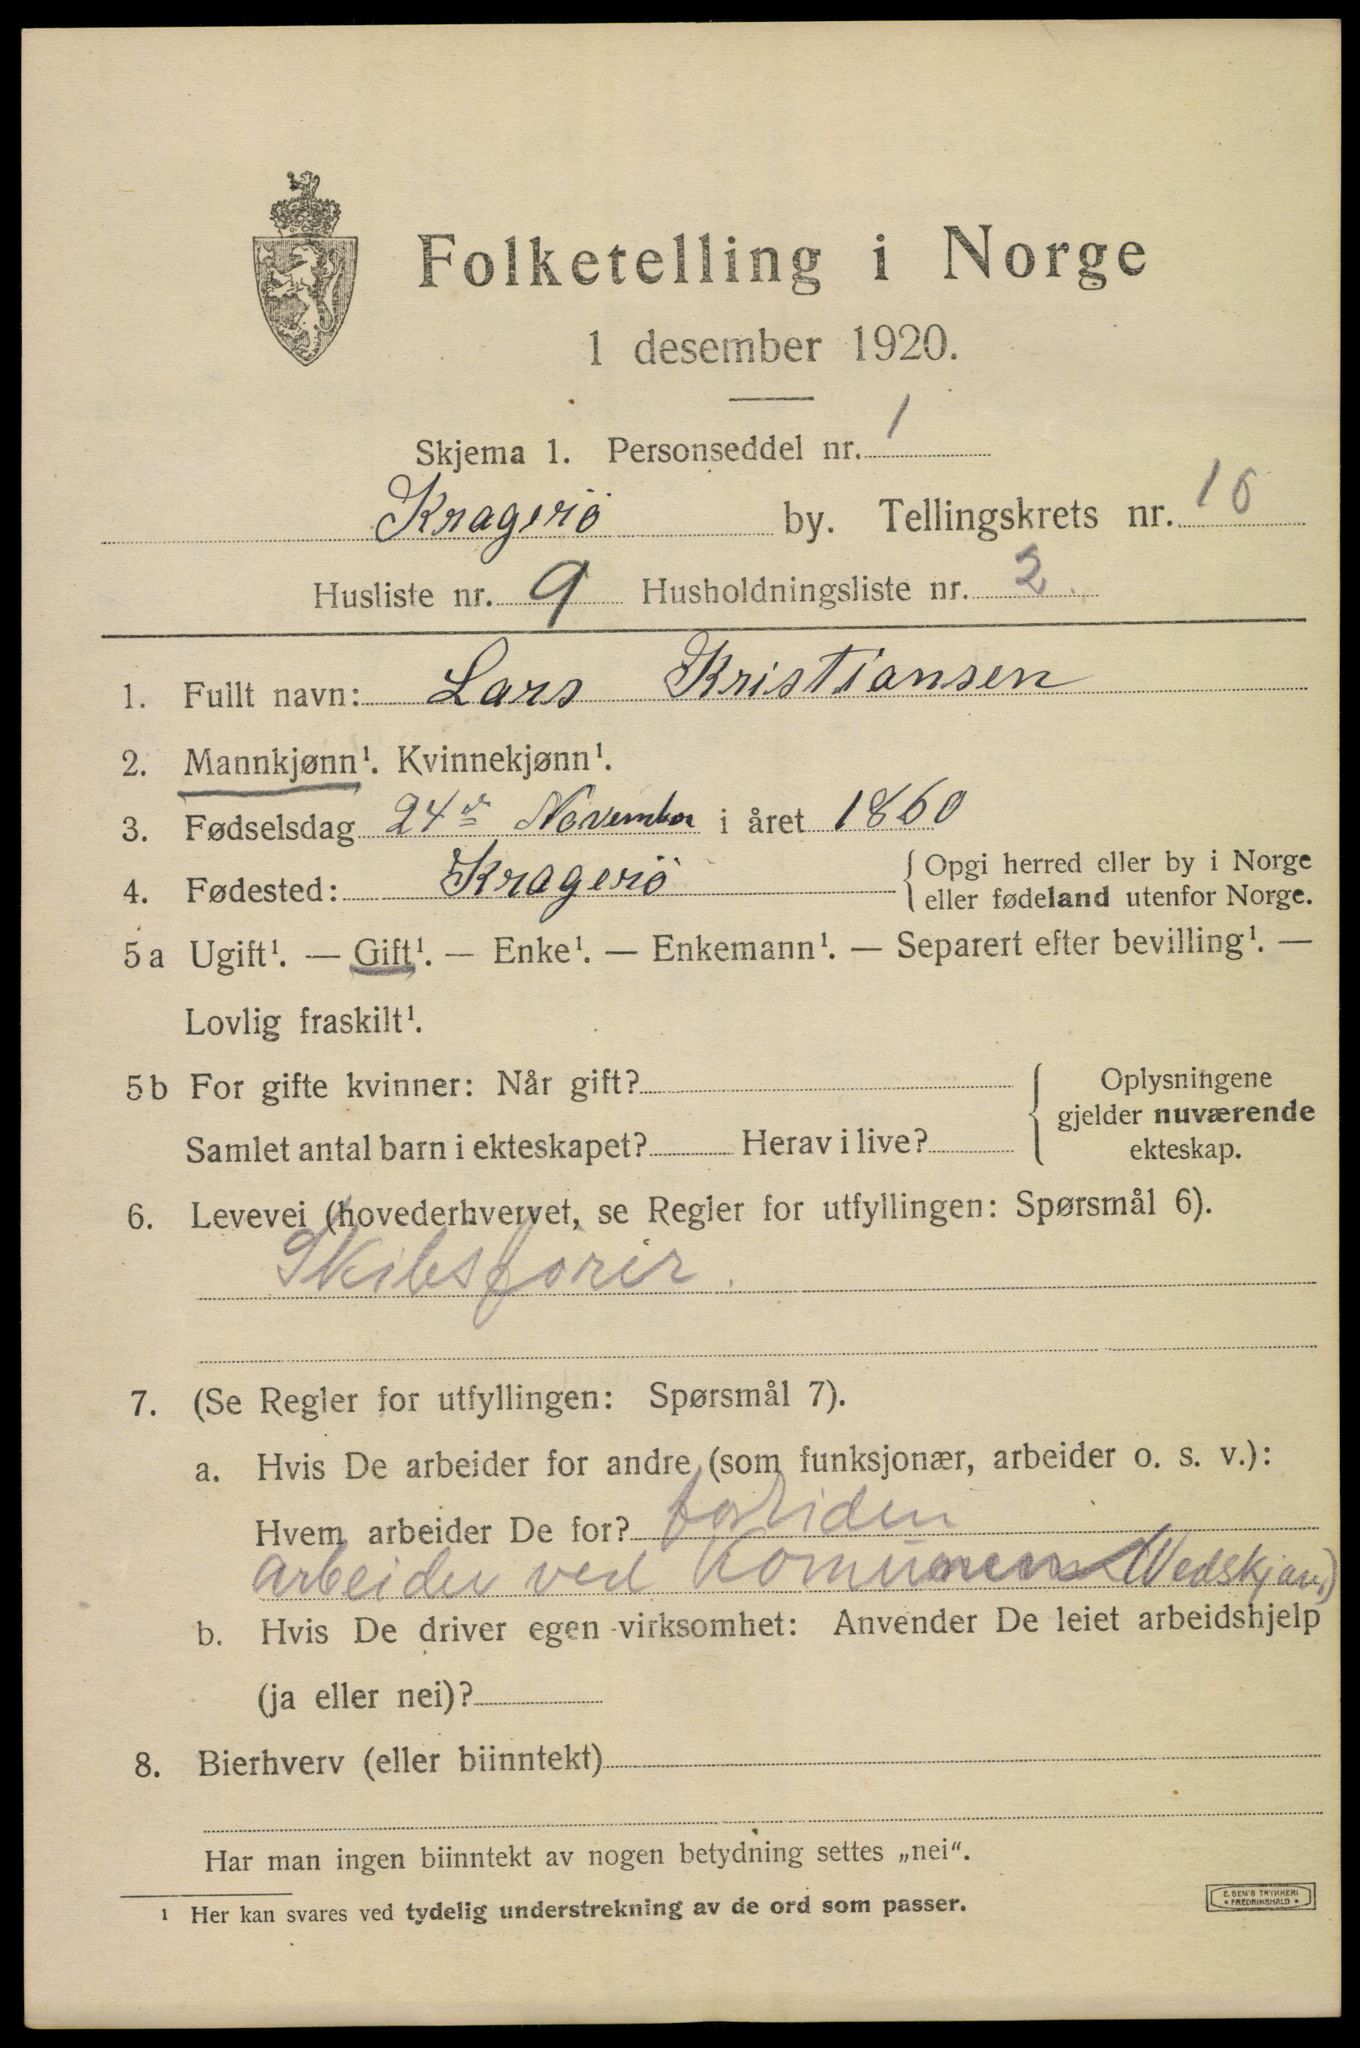 Folketelling i Norge
1 desember 1920.
Skjema 1. Personseddel nr. 1
Kragerö by. Tellingskrets nr. 10
Husliste nr. 9 Husholdningsliste nr. 2.
1. Fullt navn: Lars Kristiansen
2. Mannkjønn¹. Kvinnekjønn¹.
3. Fødselsdag 24de November i året 1860
4. Fødested: Kragerö { Opgi herred eller by i Norge
eller fødeland utenfor Norge.
5a Ugift¹. — Gift¹. — Enke¹. — Enkemann¹. — Separert efter bevilling¹. —
Lovlig fraskilt¹.
5b For gifte kvinner: Når gift?
Samlet antal barn i ekteskapet? Herav i live?
{ Oplysningene
gjelder nuværende
ekteskap.
6. Levevei (hovederhvervet, se Regler for utfyllingen: Spørsmål 6).
Skibsforer.
7. (Se Regler for utfyllingen: Spørsmål 7).
a. Hvis De arbeider for andre (som funksjonær, arbeider o. s. v.):
Hvem arbeider De for? fortiden
arbeider ved
b. Hvis De driver egen virksomhet: Anvender De leiet arbeidshjelp
(ja eller nei)?
8. Bierhverv (eller biinntekt)
Har man ingen biinntekt av nogen betydning settes „nei“.
¹ Her kan svares ved tydelig understrekning av de ord som passer.
E. SEM'S TRYKKERI
* FREDRIKSHALD *